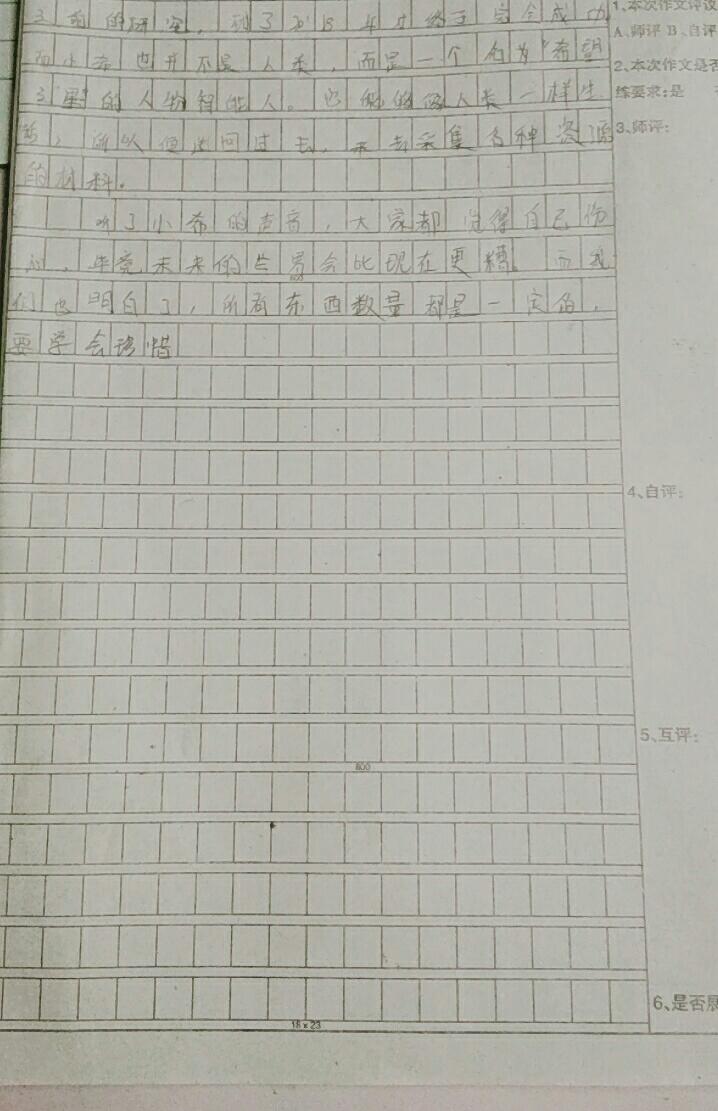 3 的研究,到了2 年才终于完全成功
而小希也并不是人类,而是一个名为"希望
3星"的人物智能人。它 够像人类一样生
所以便 回过去,来去采集各种资源
的材料。
听了小希的声音,大家都觉得自己伤
心,毕竟未来的世界会比现在更糟。而我
们也明白了,所有东西数量都是一定的,
要学会珍惜
600
800
18×23
1、本次作文评议
A、师评 B、自评
2、本次作文是否
练要求:是
3、师评:
4、自评:
5、互评:
6、是否展